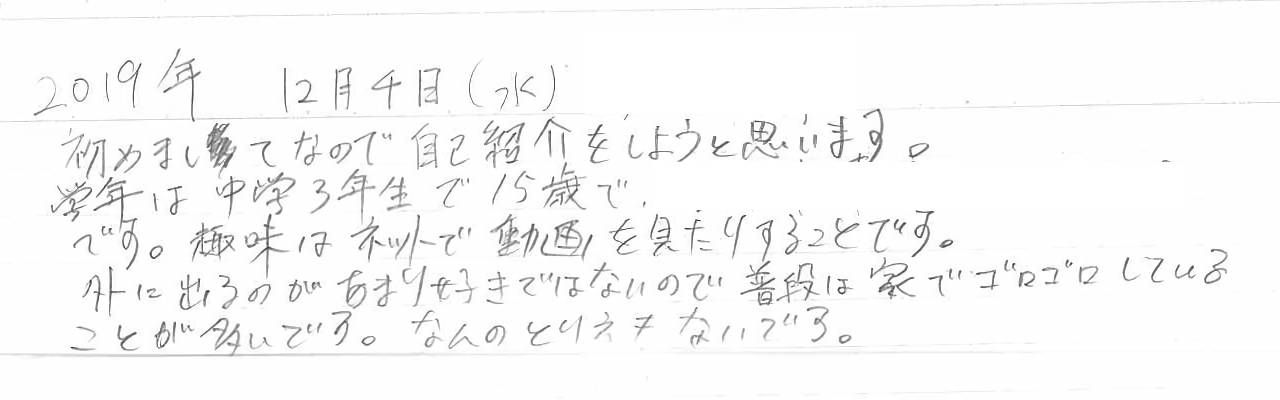 2019年 12月4日(水)
初めましてなので自己紹介をしようと思います。
学年は中学3年生で15歳で、
です。趣味はネットで動画を見たりすることです。
外に出るのがあまり好きではないので普段は家でゴロゴロしている
ことが多いです。なんのとりえもないです。